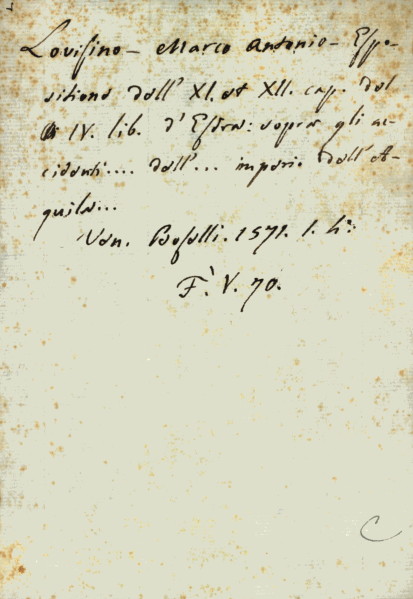 Lovisino – Marco Antonio – Espo-
sitione dell' XI. et XII. cap. del
IV. lib. d'Esdra: sopra gli ac-
cidenti.... dell'... imperio dell'A-
quila...
Ven. Boselli. 1571. 1. h:
F. V. 70.
C